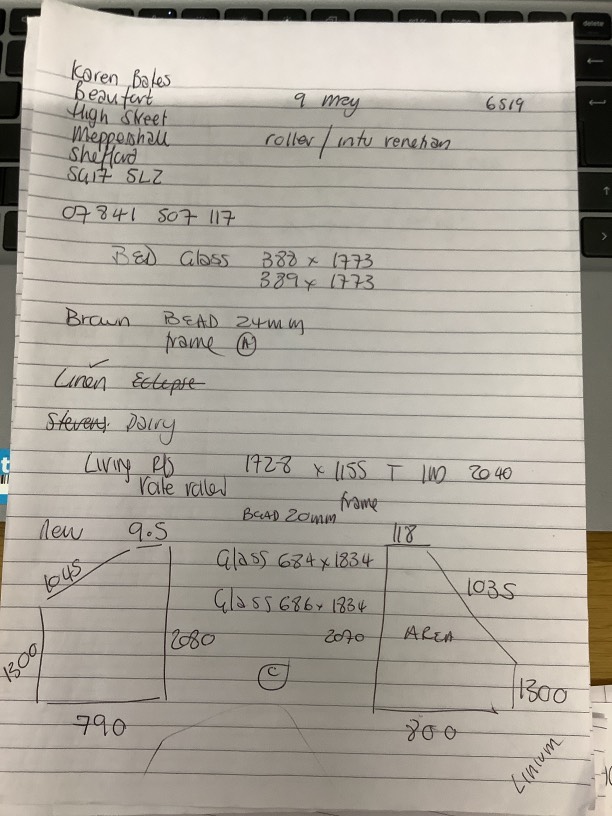 Karen Bates
Beaufort 9 may 6519
High Street
Meppershall roller / intu renehan
Shefford
SG17 5LZ
07841 507 117
BED Glass 388 x 1773
389 x 1773
Brown BEAD 24mm
frame A
Linen Eclipse
Stevens Dairy
Living RD 1728 x 1155 T 1W 2040
Vale valed frame
BEAD 20mm
New 9.5 118
1045 Glass 684 x 1834
Glass 686 x 1834 1035
1300 2080 2070 AREA
C 1300
790 800
Linium